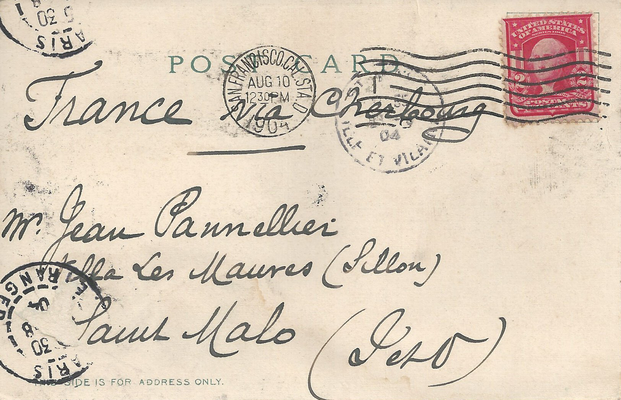 PARIS
30
8
POST CARD
SAN FRANCISCO, CAL. STA. D
AUG 10
12 30 PM
1904
UNITED STATES OF AMERICA
2 2
CENTS
France via Cherbourg
04
ILLE ET VILAINE
Mr. Jean Pannellier
Villa Les Maures (Sillon)
Saint Malo (I et V)
PARIS
30
8
04
ETRANGER
THIS SIDE IS FOR ADDRESS ONLY.